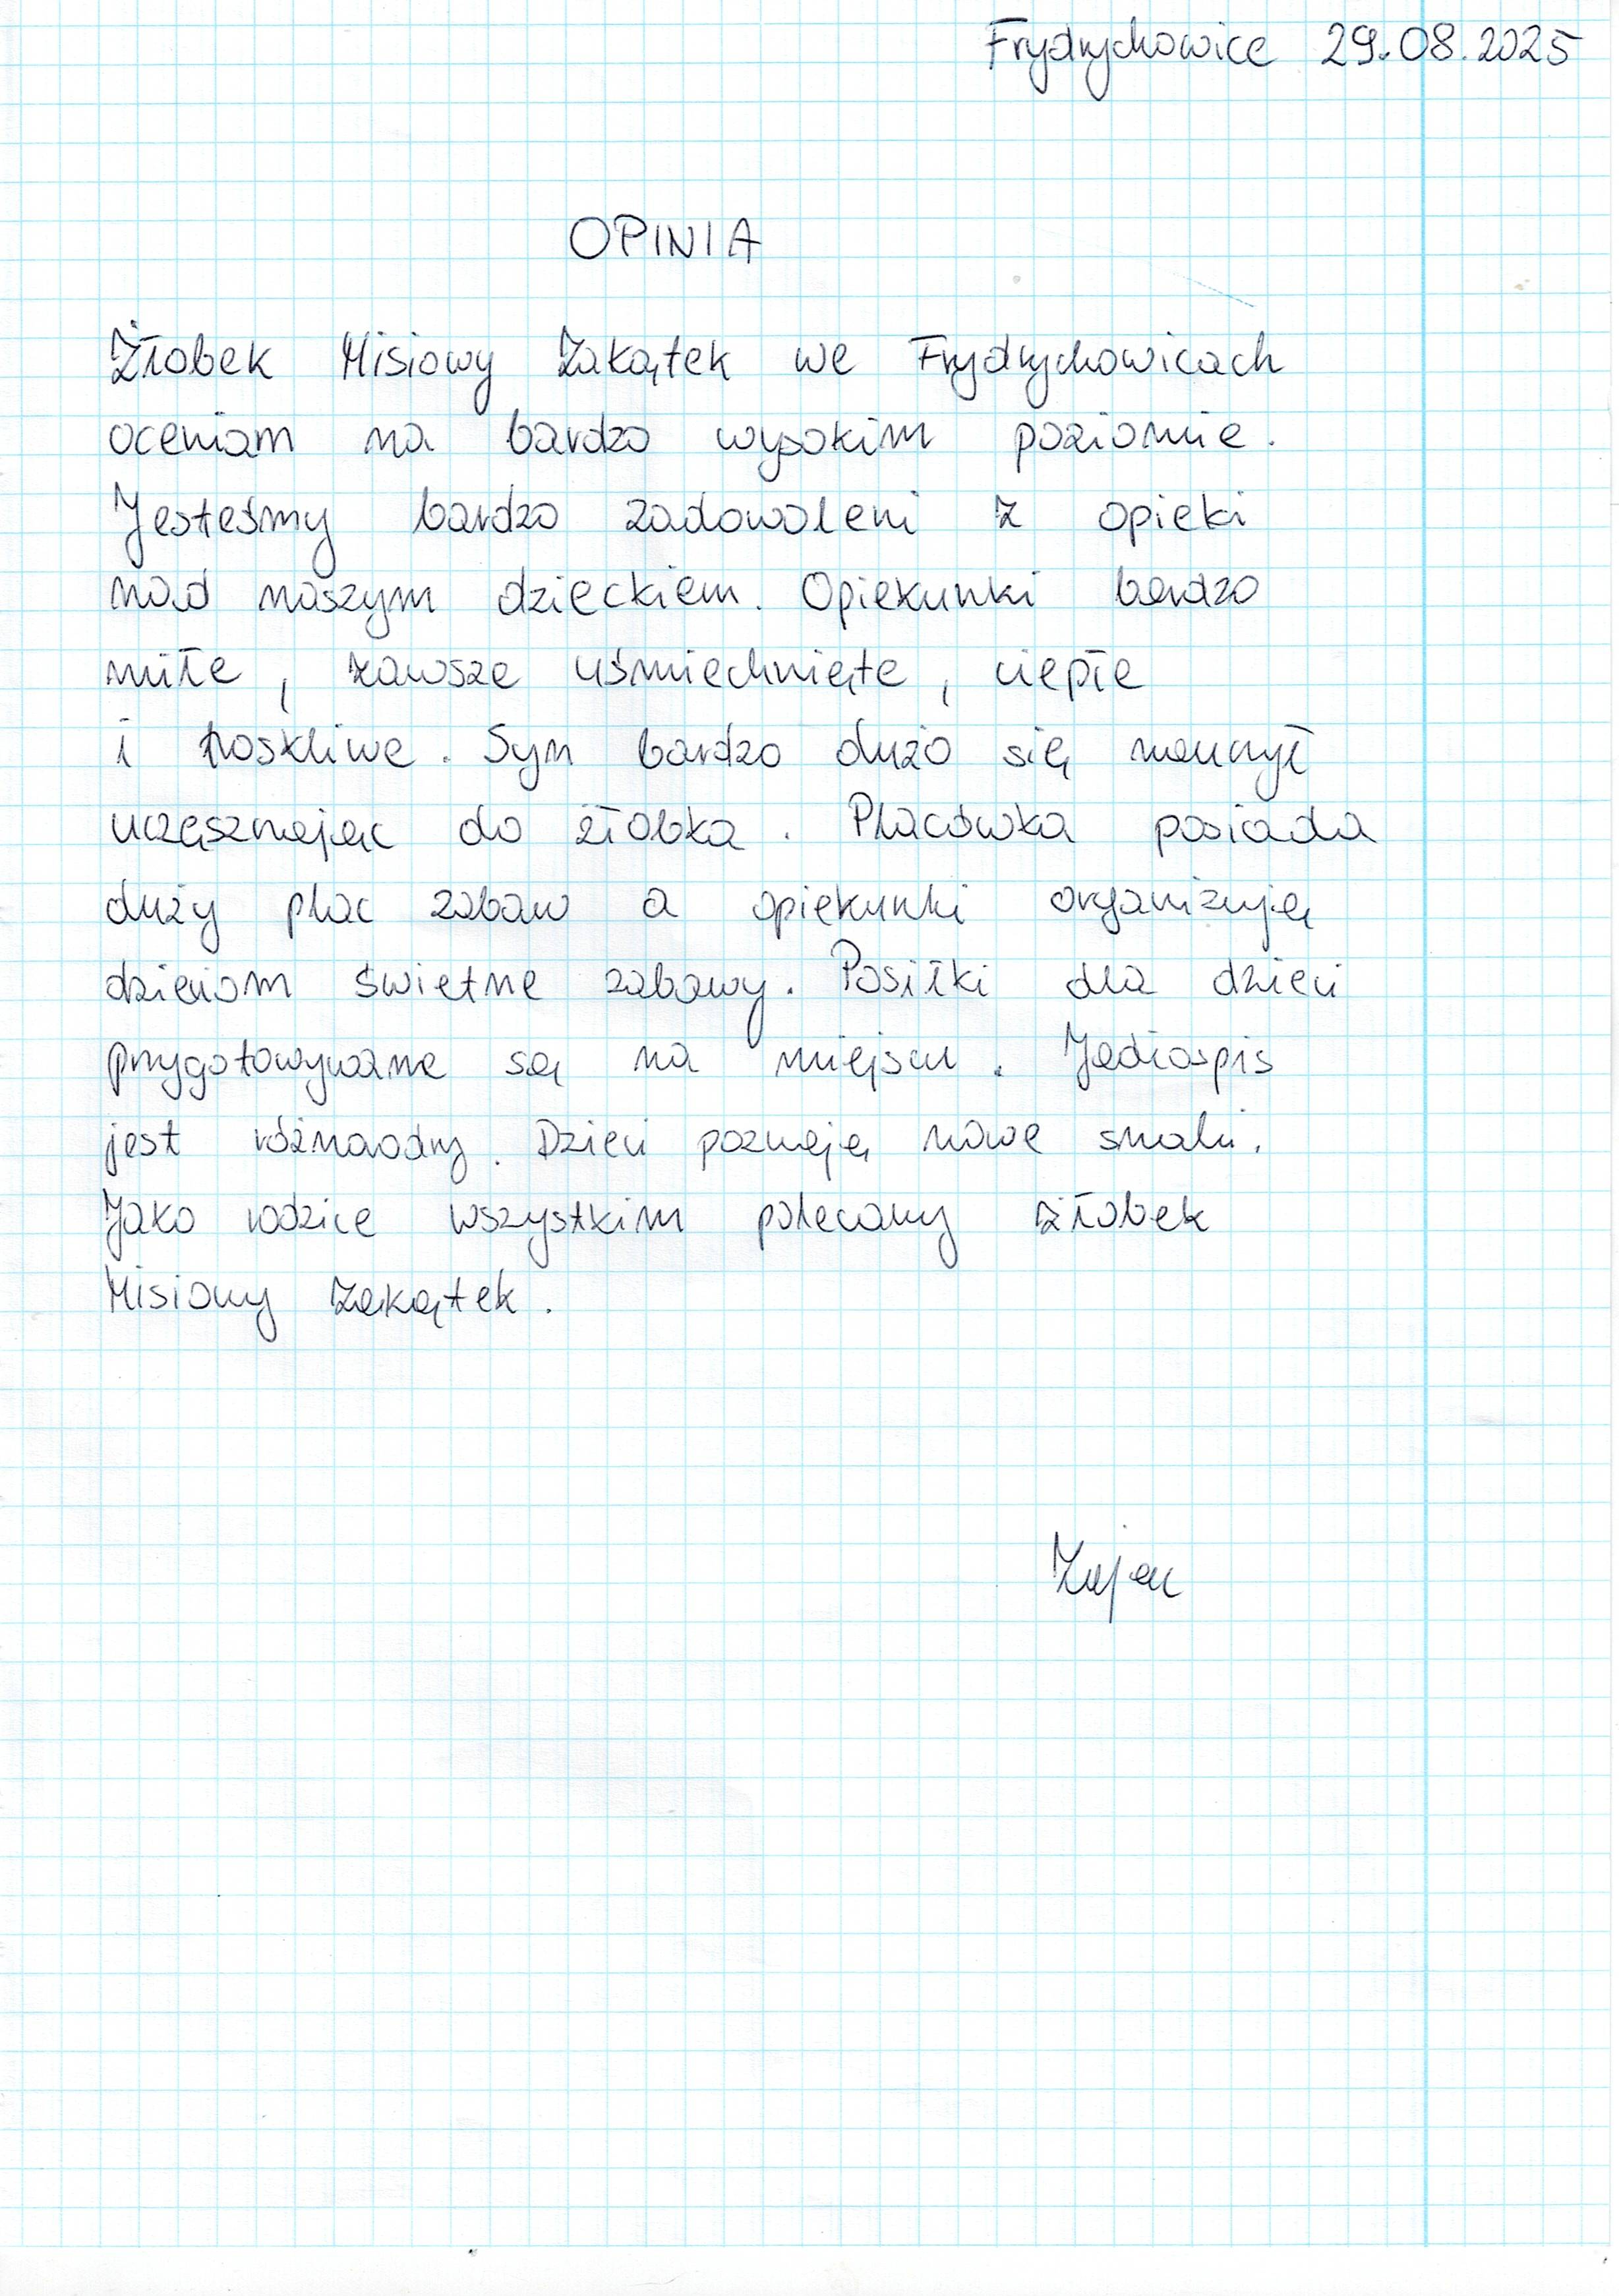 Frydrychowice 29.08.2025
OPINIA
Żłobek Misiowy Zakątek we Frydrychowicach
oceniam na bardzo wysokim poziomie.
Jesteśmy bardzo zadowoleni z opieki
nad naszym dzieckiem. Opiekunki bardzo
miłe, zawsze uśmiechnięte, ciepłe
i troskliwe. Syn bardzo dużo się nauczył
uczęszczając do żłobka. Placówka posiada
duży plac zabaw a opiekunki organizują
dzieciom świetne zabawy. Posiłki dla dzieci
przygotowywane są na miejscu. Jadłospis
jest różnorodny. Dzieci poznają nowe smaki.
Jako rodzice wszystkim polecamy żłobek
Misiowy Zakątek.
Zając